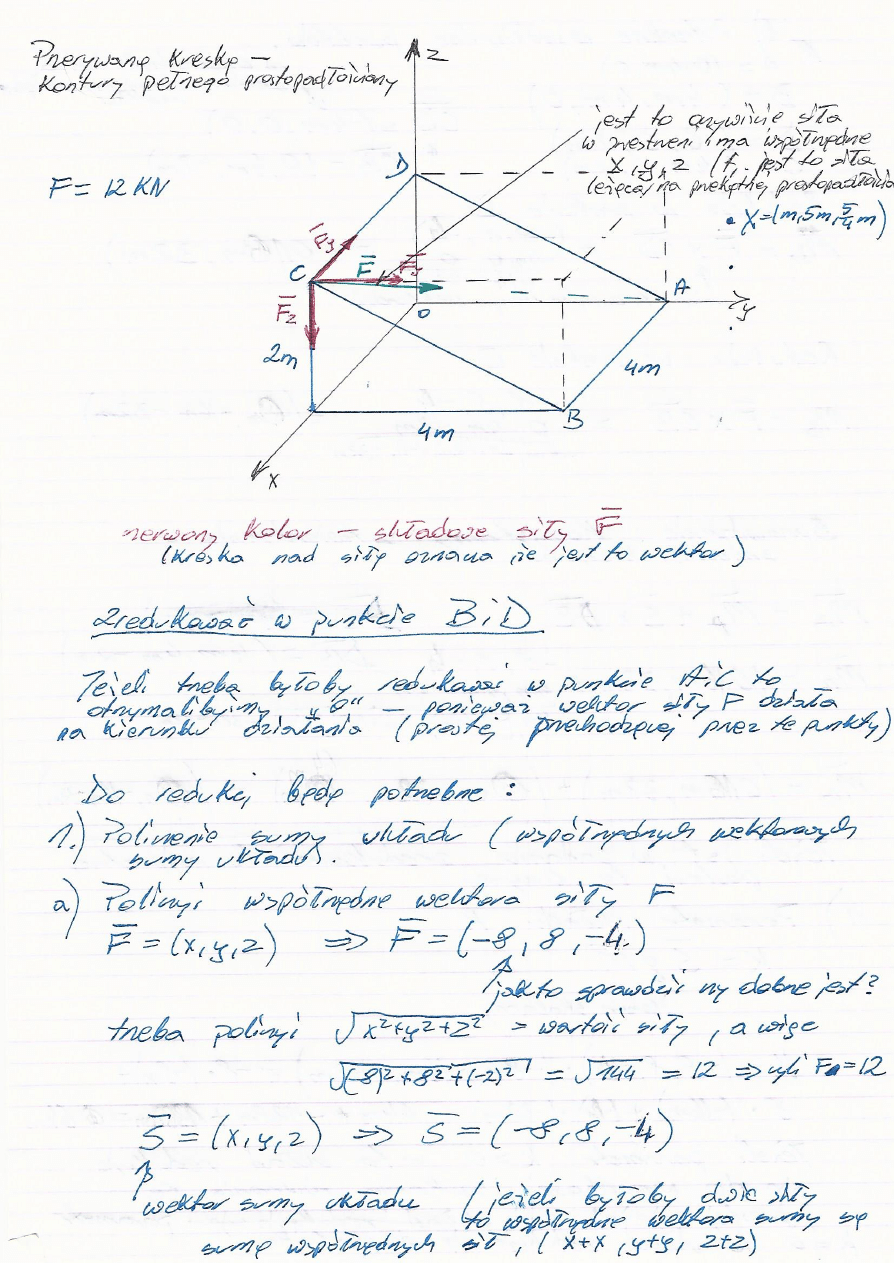 Przerywaną kreską –
kontury pełnego prostopadłościanu
z
jest to oczywiście siła
w przestrzeni i ma współrzędne
x, y, z (tj. jest to siła
leżąca na przekątnej prostopadłościa
• X=(m, 5m, 5/4 m)
F = 12 KN
D
C
F̄
F̄z
2m
o
A
y
4m
B
4m
x
czerwony kolor – składowe siły F̄
(kreska nad siłą oznacza że jest to wektor)
Zredukować w punkcie B i D
Jeżeli trzeba byłoby redukować w punkcie A i C to
otrzymalibyśmy "0" – ponieważ wektor siły F działa
na kierunku działania (prostej przechodzącej przez te punkty)
Do redukcji będę potrzebne :
1.) Policzenie sumy układu (współrzędnych wektorowych
sumy układu).
a) Policzyć współrzędne wektora siły F
F̄ = (x, y, z) => F̄ = (-8, 8, -4)
jak to sprawdzić czy dobrze jest?
trzeba policzyć √x²+y²+z² = wartość siły, a więc
√(-8)²+8²+(-2)² = √144 = 12 => czyli F = 12
S̄ = (x, y, z) => S̄ = (-8, 8, -4)
wektor sumy układu (jeżeli byłoby dwie siły
to współrzędne wektora sumy są
sumą współrzędnych sił, (x+x, y+y, z+z)